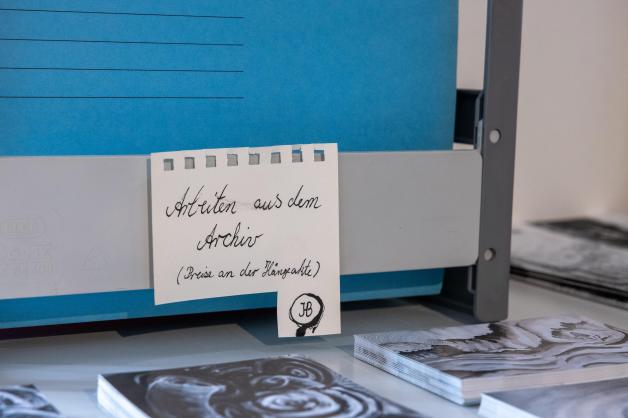 Arbeiten aus dem
Archiv
(Preise an der Hängeakte)
HB